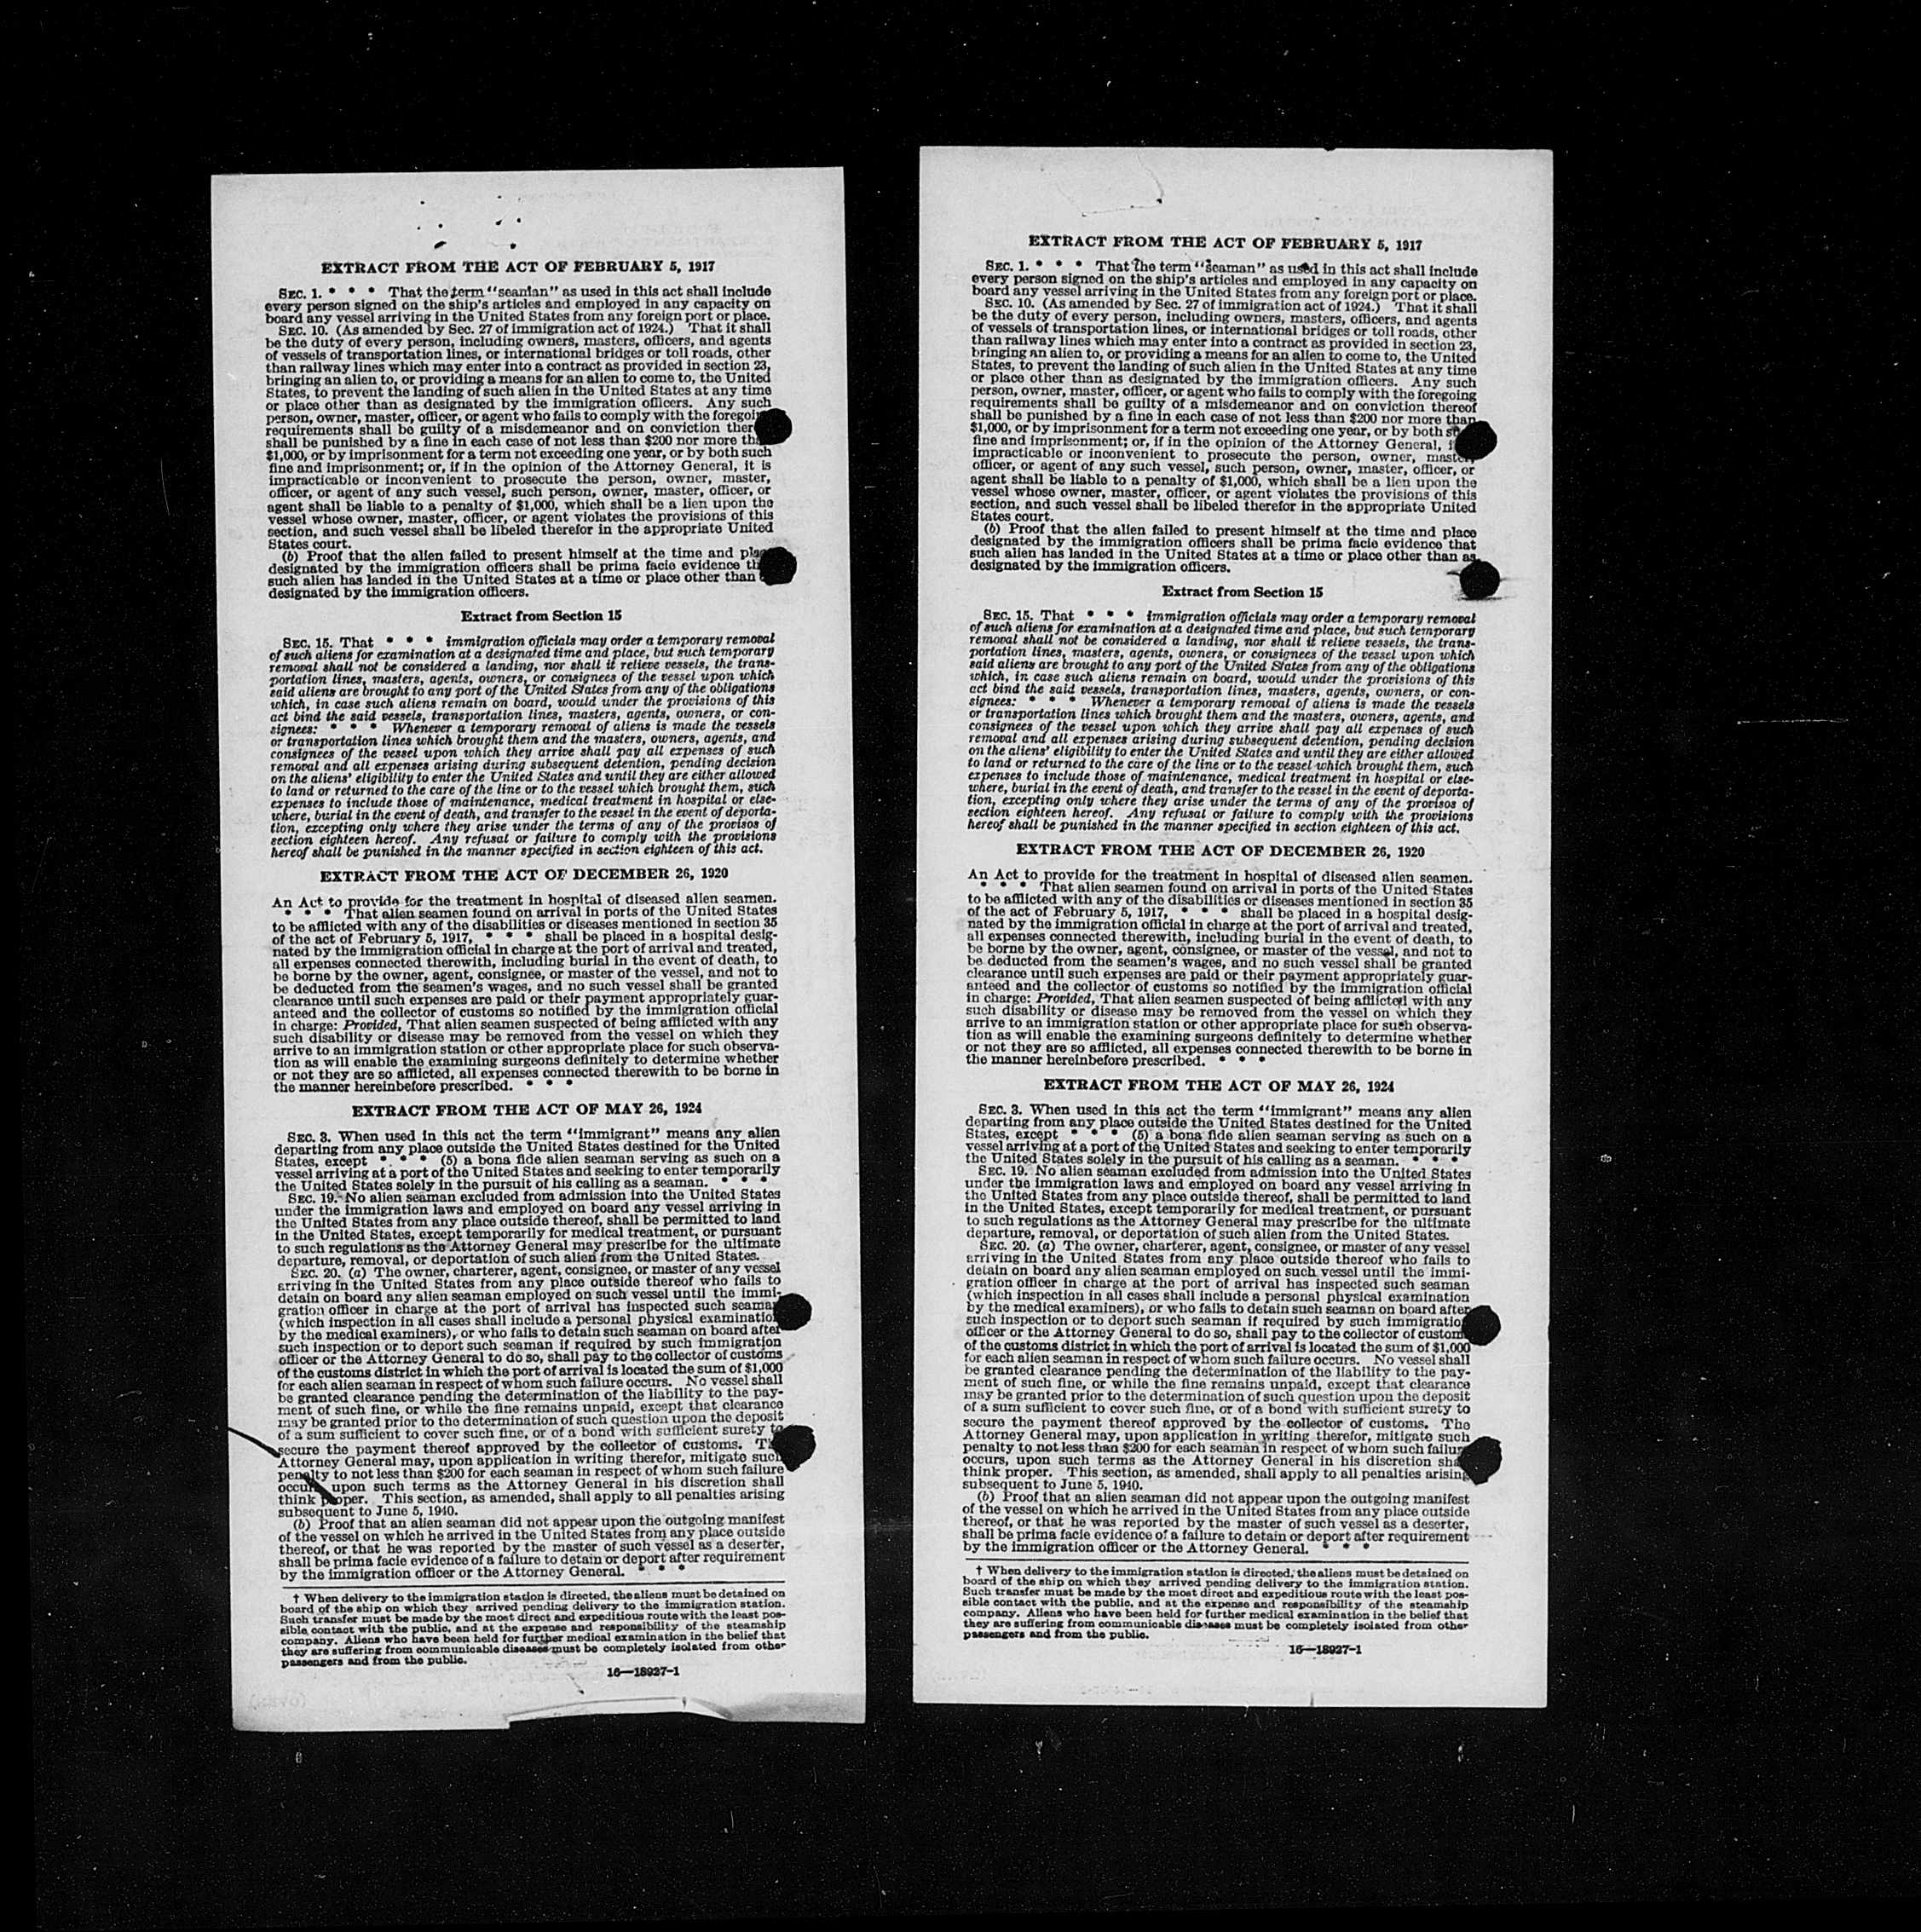 EXTRACT FROM THE ACT OF FEBRUARY 5, 1917
SEC. 1. * * * That the term "seaman" as used in this act shall include
every person signed on the ship's articles and employed in any capacity on
board any vessel arriving in the United States from any foreign port or place.
SEC. 10. (As amended by Sec. 27 of immigration act of 1924.) That it shall
be the duty of every person, including owners, masters, officers, and agents
of vessels of transportation lines, or international bridges or toll roads, other
than railway lines which may enter into a contract as provided in section 23,
bringing an alien to, or providing a means for an alien to come to, the United
States, to prevent the landing of such alien in the United States at any time
or place other than as designated by the immigration officers. Any such
person, owner, master, officer, or agent who fails to comply with the
requirements shall be guilty of a misdemeanor and on conviction
shall be punished by a fine in each case of not less than $200 nor more
$1,000, or by imprisonment for a term not exceeding one year, or by both such
fine and imprisonment; or, if in the opinion of the Attorney General, it is
impracticable or inconvenient to prosecute the person, owner, master,
officer, or agent of any such vessel, such person, owner, master, officer, or
agent shall be liable to a penalty of $1,000, which shall be a lien upon the
vessel whose owner, master, officer, or agent violates the provisions of this
section, and such vessel shall be libeled therefor in the appropriate United
States court.
(b) Proof that the alien failed to present himself at the time and
designated by the immigration officers shall be prima facie evidence
such alien has landed in the United States at a time or place other than
designated by the immigration officers.
Extract from Section 15
SEC. 15. That * * * immigration officials may order a temporary removal
of such aliens for examination at a designated time and place, but such temporary
removal shall not be considered a landing, nor shall it relieve vessels, the trans-
portation lines, masters, agents, owners, or consignees of the vessel upon which
said aliens are brought to any port of the United States from any of the obligations
which, in case such aliens remain on board, would under the provisions of this
act bind the said vessels, transportation lines, masters, agents, owners, or con-
signees: * * * Whenever a temporary removal of aliens is made the vessels
or transportation lines which brought them and the masters, owners, agents, and
consignees of the vessel upon which they arrive shall pay all expenses of such
removal and all expenses arising during subsequent detention, pending decision
on the aliens' eligibility to enter the United States and until they are either allowed
to land or returned to the care of the line or to the vessel which brought them, such
expenses to include those of maintenance, medical treatment in hospital or else-
where, burial in the event of death, and transfer to the vessel in the event of deporta-
tion, excepting only where they arise under the terms of any of the provisos of
section eighteen hereof. Any refusal or failure to comply with the provisions
hereof shall be punished in the manner specified in section eighteen of this act.
EXTRACT FROM THE ACT OF DECEMBER 26, 1920
An Act to provide for the treatment in hospital of diseased alien seamen.
* * * That alien seamen found on arrival in ports of the United States
to be afflicted with any of the disabilities or diseases mentioned in section 35
of the act of February 5, 1917, * * * shall be placed in a hospital desig-
nated by the immigration official in charge at the port of arrival and treated,
all expenses connected therewith, including burial in the event of death, to
be borne by the owner, agent, consignee, or master of the vessel, and not to
be deducted from the seamen's wages, and no such vessel shall be granted
clearance until such expenses are paid or their payment appropriately guar-
anteed and the collector of customs so notified by the immigration official
in charge: Provided, That alien seamen suspected of being afflicted with any
such disability or disease may be removed from the vessel on which they
arrive to an immigration station or other appropriate place for such observa-
tion as will enable the examining surgeons definitely to determine whether
or not they are so afflicted, all expenses connected therewith to be borne in
the manner hereinbefore prescribed. * * *
EXTRACT FROM THE ACT OF MAY 26, 1924
SEC. 3. When used in this act the term "immigrant" means any alien
departing from any place outside the United States destined for the United
States, except * * * (5) a bona fide alien seaman serving as such on a
vessel arriving at a port of the United States and seeking to enter temporarily
the United States solely in the pursuit of his calling as a seaman. * * *
SEC. 19. No alien seaman excluded from admission into the United States
under the immigration laws and employed on board any vessel arriving in
the United States from any place outside thereof, shall be permitted to land
in the United States, except temporarily for medical treatment, or pursuant
to such regulations as the Attorney General may prescribe for the ultimate
departure, removal, or deportation of such alien from the United States.
SEC. 20. (a) The owner, charterer, agent, consignee, or master of any vessel
arriving in the United States from any place outside thereof who fails to
detain on board any alien seaman employed on such vessel until the immi-
gration officer in charge at the port of arrival has inspected such seaman
(which inspection in all cases shall include a personal physical examination
by the medical examiners), or who fails to detain such seaman on board after
such inspection or to deport such seaman if required by such immigration
officer or the Attorney General to do so, shall pay to the collector of customs
of the customs district in which the port of arrival is located the sum of $1,000
for each alien seaman in respect of whom such failure occurs. No vessel shall
be granted clearance pending the determination of the liability to the pay-
ment of such fine, or while the fine remains unpaid, except that clearance
may be granted prior to the determination of such question upon the deposit
of a sum sufficient to cover such fine, or of a bond with sufficient surety to
secure the payment thereof approved by the collector of customs.
Attorney General may, upon application in writing therefor, mitigate such
penalty to not less than $200 for each seaman in respect of whom such failure
occurs, upon such terms as the Attorney General in his discretion shall
think proper. This section, as amended, shall apply to all penalties arising
subsequent to June 5, 1940.
(b) Proof that an alien seaman did not appear upon the outgoing manifest
of the vessel on which he arrived in the United States from any place outside
thereof, or that he was reported by the master of such vessel as a deserter,
shall be prima facie evidence of a failure to detain or deport after requirement
by the immigration officer or the Attorney General. * * *
† When delivery to the immigration station is directed, the aliens must be detained on
board of the ship on which they arrived pending delivery to the immigration station.
Such transfer must be made by the most direct and expeditious route with the least pos-
sible contact with the public, and at the expense and responsibility of the steamship
company. Aliens who have been held for further medical examination in the belief that
they are suffering from communicable diseases must be completely isolated from other
passengers and from the public.
16—18927-1
EXTRACT FROM THE ACT OF FEBRUARY 5, 1917
SEC. 1. * * * That the term "seaman" as used in this act shall include
every person signed on the ship's articles and employed in any capacity on
board any vessel arriving in the United States from any foreign port or place.
SEC. 10. (As amended by Sec. 27 of immigration act of 1924.) That it shall
be the duty of every person, including owners, masters, officers, and agents
of vessels of transportation lines, or international bridges or toll roads, other
than railway lines which may enter into a contract as provided in section 23,
bringing an alien to, or providing a means for an alien to come to, the United
States, to prevent the landing of such alien in the United States at any time
or place other than as designated by the immigration officers. Any such
person, owner, master, officer, or agent who fails to comply with the foregoing
requirements shall be guilty of a misdemeanor and on conviction thereof
shall be punished by a fine in each case of not less than $200 nor more than
$1,000, or by imprisonment for a term not exceeding one year, or by both
fine and imprisonment; or, if in the opinion of the Attorney General,
impracticable or inconvenient to prosecute the person, owner, master,
officer, or agent of any such vessel, such person, owner, master, officer, or
agent shall be liable to a penalty of $1,000, which shall be a lien upon the
vessel whose owner, master, officer, or agent violates the provisions of this
section, and such vessel shall be libeled therefor in the appropriate United
States court.
(b) Proof that the alien failed to present himself at the time and place
designated by the immigration officers shall be prima facie evidence that
such alien has landed in the United States at a time or place other than as
designated by the immigration officers.
Extract from Section 15
SEC. 15. That * * * immigration officials may order a temporary removal
of such aliens for examination at a designated time and place, but such temporary
removal shall not be considered a landing, nor shall it relieve vessels, the trans-
portation lines, masters, agents, owners, or consignees of the vessel upon which
said aliens are brought to any port of the United States from any of the obligations
which, in case such aliens remain on board, would under the provisions of this
act bind the said vessels, transportation lines, masters, agents, owners, or con-
signees: * * * Whenever a temporary removal of aliens is made the vessels
or transportation lines which brought them and the masters, owners, agents, and
consignees of the vessel upon which they arrive shall pay all expenses of such
removal and all expenses arising during subsequent detention, pending decision
on the aliens' eligibility to enter the United States and until they are either allowed
to land or returned to the care of the line or to the vessel which brought them, such
expenses to include those of maintenance, medical treatment in hospital or else-
where, burial in the event of death, and transfer to the vessel in the event of deporta-
tion, excepting only where they arise under the terms of any of the provisos of
section eighteen hereof. Any refusal or failure to comply with the provisions
hereof shall be punished in the manner specified in section eighteen of this act.
EXTRACT FROM THE ACT OF DECEMBER 26, 1920
An Act to provide for the treatment in hospital of diseased alien seamen.
* * * That alien seamen found on arrival in ports of the United States
to be afflicted with any of the disabilities or diseases mentioned in section 35
of the act of February 5, 1917, * * * shall be placed in a hospital desig-
nated by the immigration official in charge at the port of arrival and treated,
all expenses connected therewith, including burial in the event of death, to
be borne by the owner, agent, consignee, or master of the vessel, and not to
be deducted from the seamen's wages, and no such vessel shall be granted
clearance until such expenses are paid or their payment appropriately guar-
anteed and the collector of customs so notified by the immigration official
in charge: Provided, That alien seamen suspected of being afflicted with any
such disability or disease may be removed from the vessel on which they
arrive to an immigration station or other appropriate place for such observa-
tion as will enable the examining surgeons definitely to determine whether
or not they are so afflicted, all expenses connected therewith to be borne in
the manner hereinbefore prescribed. * * *
EXTRACT FROM THE ACT OF MAY 26, 1924
SEC. 3. When used in this act the term "immigrant" means any alien
departing from any place outside the United States destined for the United
States, except * * * (5) a bona fide alien seaman serving as such on a
vessel arriving at a port of the United States and seeking to enter temporarily
the United States solely in the pursuit of his calling as a seaman. * * *
SEC. 19. No alien seaman excluded from admission into the United States
under the immigration laws and employed on board any vessel arriving in
the United States from any place outside thereof, shall be permitted to land
in the United States, except temporarily for medical treatment, or pursuant
to such regulations as the Attorney General may prescribe for the ultimate
departure, removal, or deportation of such alien from the United States.
SEC. 20. (a) The owner, charterer, agent, consignee, or master of any vessel
arriving in the United States from any place outside thereof who fails to
detain on board any alien seaman employed on such vessel until the immi-
gration officer in charge at the port of arrival has inspected such seaman
(which inspection in all cases shall include a personal physical examination
by the medical examiners), or who fails to detain such seaman on board after
such inspection or to deport such seaman if required by such immigration
officer or the Attorney General to do so, shall pay to the collector of customs
of the customs district in which the port of arrival is located the sum of $1,000
for each alien seaman in respect of whom such failure occurs. No vessel shall
be granted clearance pending the determination of the liability to the pay-
ment of such fine, or while the fine remains unpaid, except that clearance
may be granted prior to the determination of such question upon the deposit
of a sum sufficient to cover such fine, or of a bond with sufficient surety to
secure the payment thereof approved by the collector of customs. The
Attorney General may, upon application in writing therefor, mitigate such
penalty to not less than $200 for each seaman in respect of whom such failure
occurs, upon such terms as the Attorney General in his discretion
think proper. This section, as amended, shall apply to all penalties arising
subsequent to June 5, 1940.
(b) Proof that an alien seaman did not appear upon the outgoing manifest
of the vessel on which he arrived in the United States from any place outside
thereof, or that he was reported by the master of such vessel as a deserter,
shall be prima facie evidence of a failure to detain or deport after requirement
by the immigration officer or the Attorney General. * * *
† When delivery to the immigration station is directed, the aliens must be detained on
board of the ship on which they arrived pending delivery to the immigration station.
Such transfer must be made by the most direct and expeditious route with the least pos-
sible contact with the public, and at the expense and responsibility of the steamship
company. Aliens who have been held for further medical examination in the belief that
they are suffering from communicable diseases must be completely isolated from other
passengers and from the public.
16—18927-1